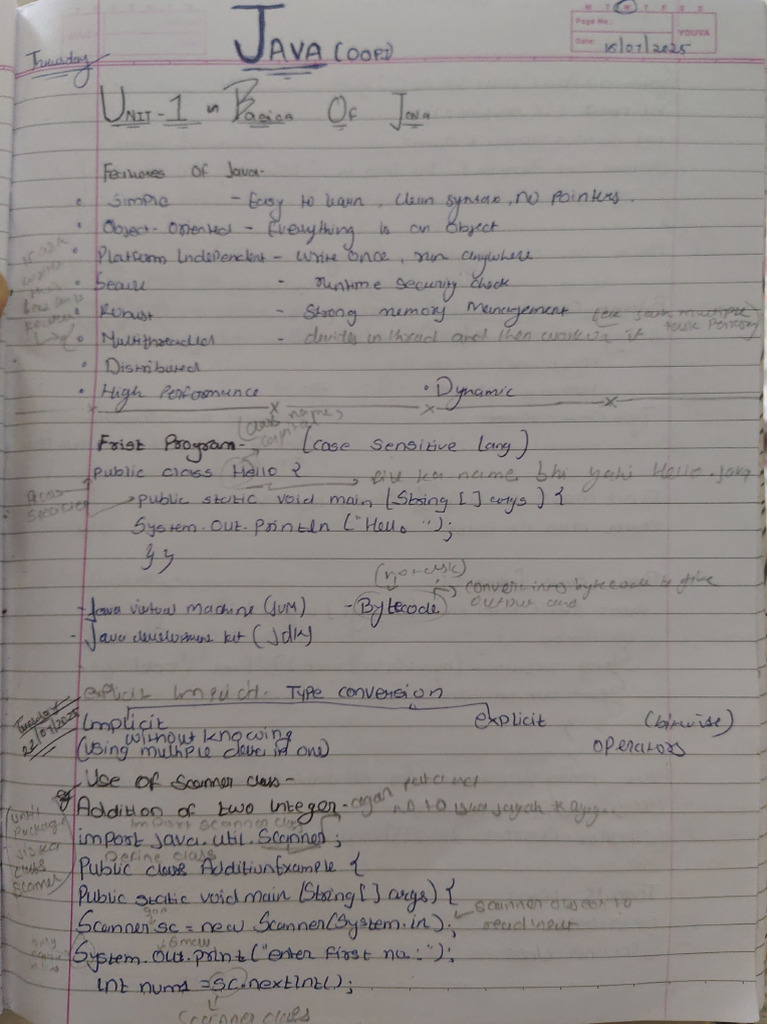 M T W T F S S
Page No.:
Date: 15/07/2025
YOUVA
JAVA (OOPs)
UNIT-1 Basics Of Java
Features of Java-
• Simple - Easy to learn, clean syntax, no pointers.
• Object-oriented - Everything is an object
• Platform Independent - write once, run anywhere
• Secure - runtime security check
• Robust - Strong memory management
• Multithreaded - in thread and then
• Distributed
• High Performance • Dynamic
Frist Program- (case sensitive lang)
(class name capital)
Public class Hello { ka name bhi yahi Hello.java
public static void main (String [] args) {
System.out.println ("Hello ");
}}
- Java virtual machine (JVM) - Bytecode
convert into bytecode to give output
- Java development kit (Jdk)
Type conversion
22/07/2025
Implicit explicit (bitwise)
without knowing operators
(using multiple data in one)
Use of Scanner class-
Addition of two integer-
import scanner class
import java.util.Scanner;
Define class
Public class AdditionExample {
Public static void main (String [] args) {
Scanner sc = new Scanner(System.in);
scanner object to read input
System.out.print("enter first no:");
int num1 = sc.nextInt();
Scanner class